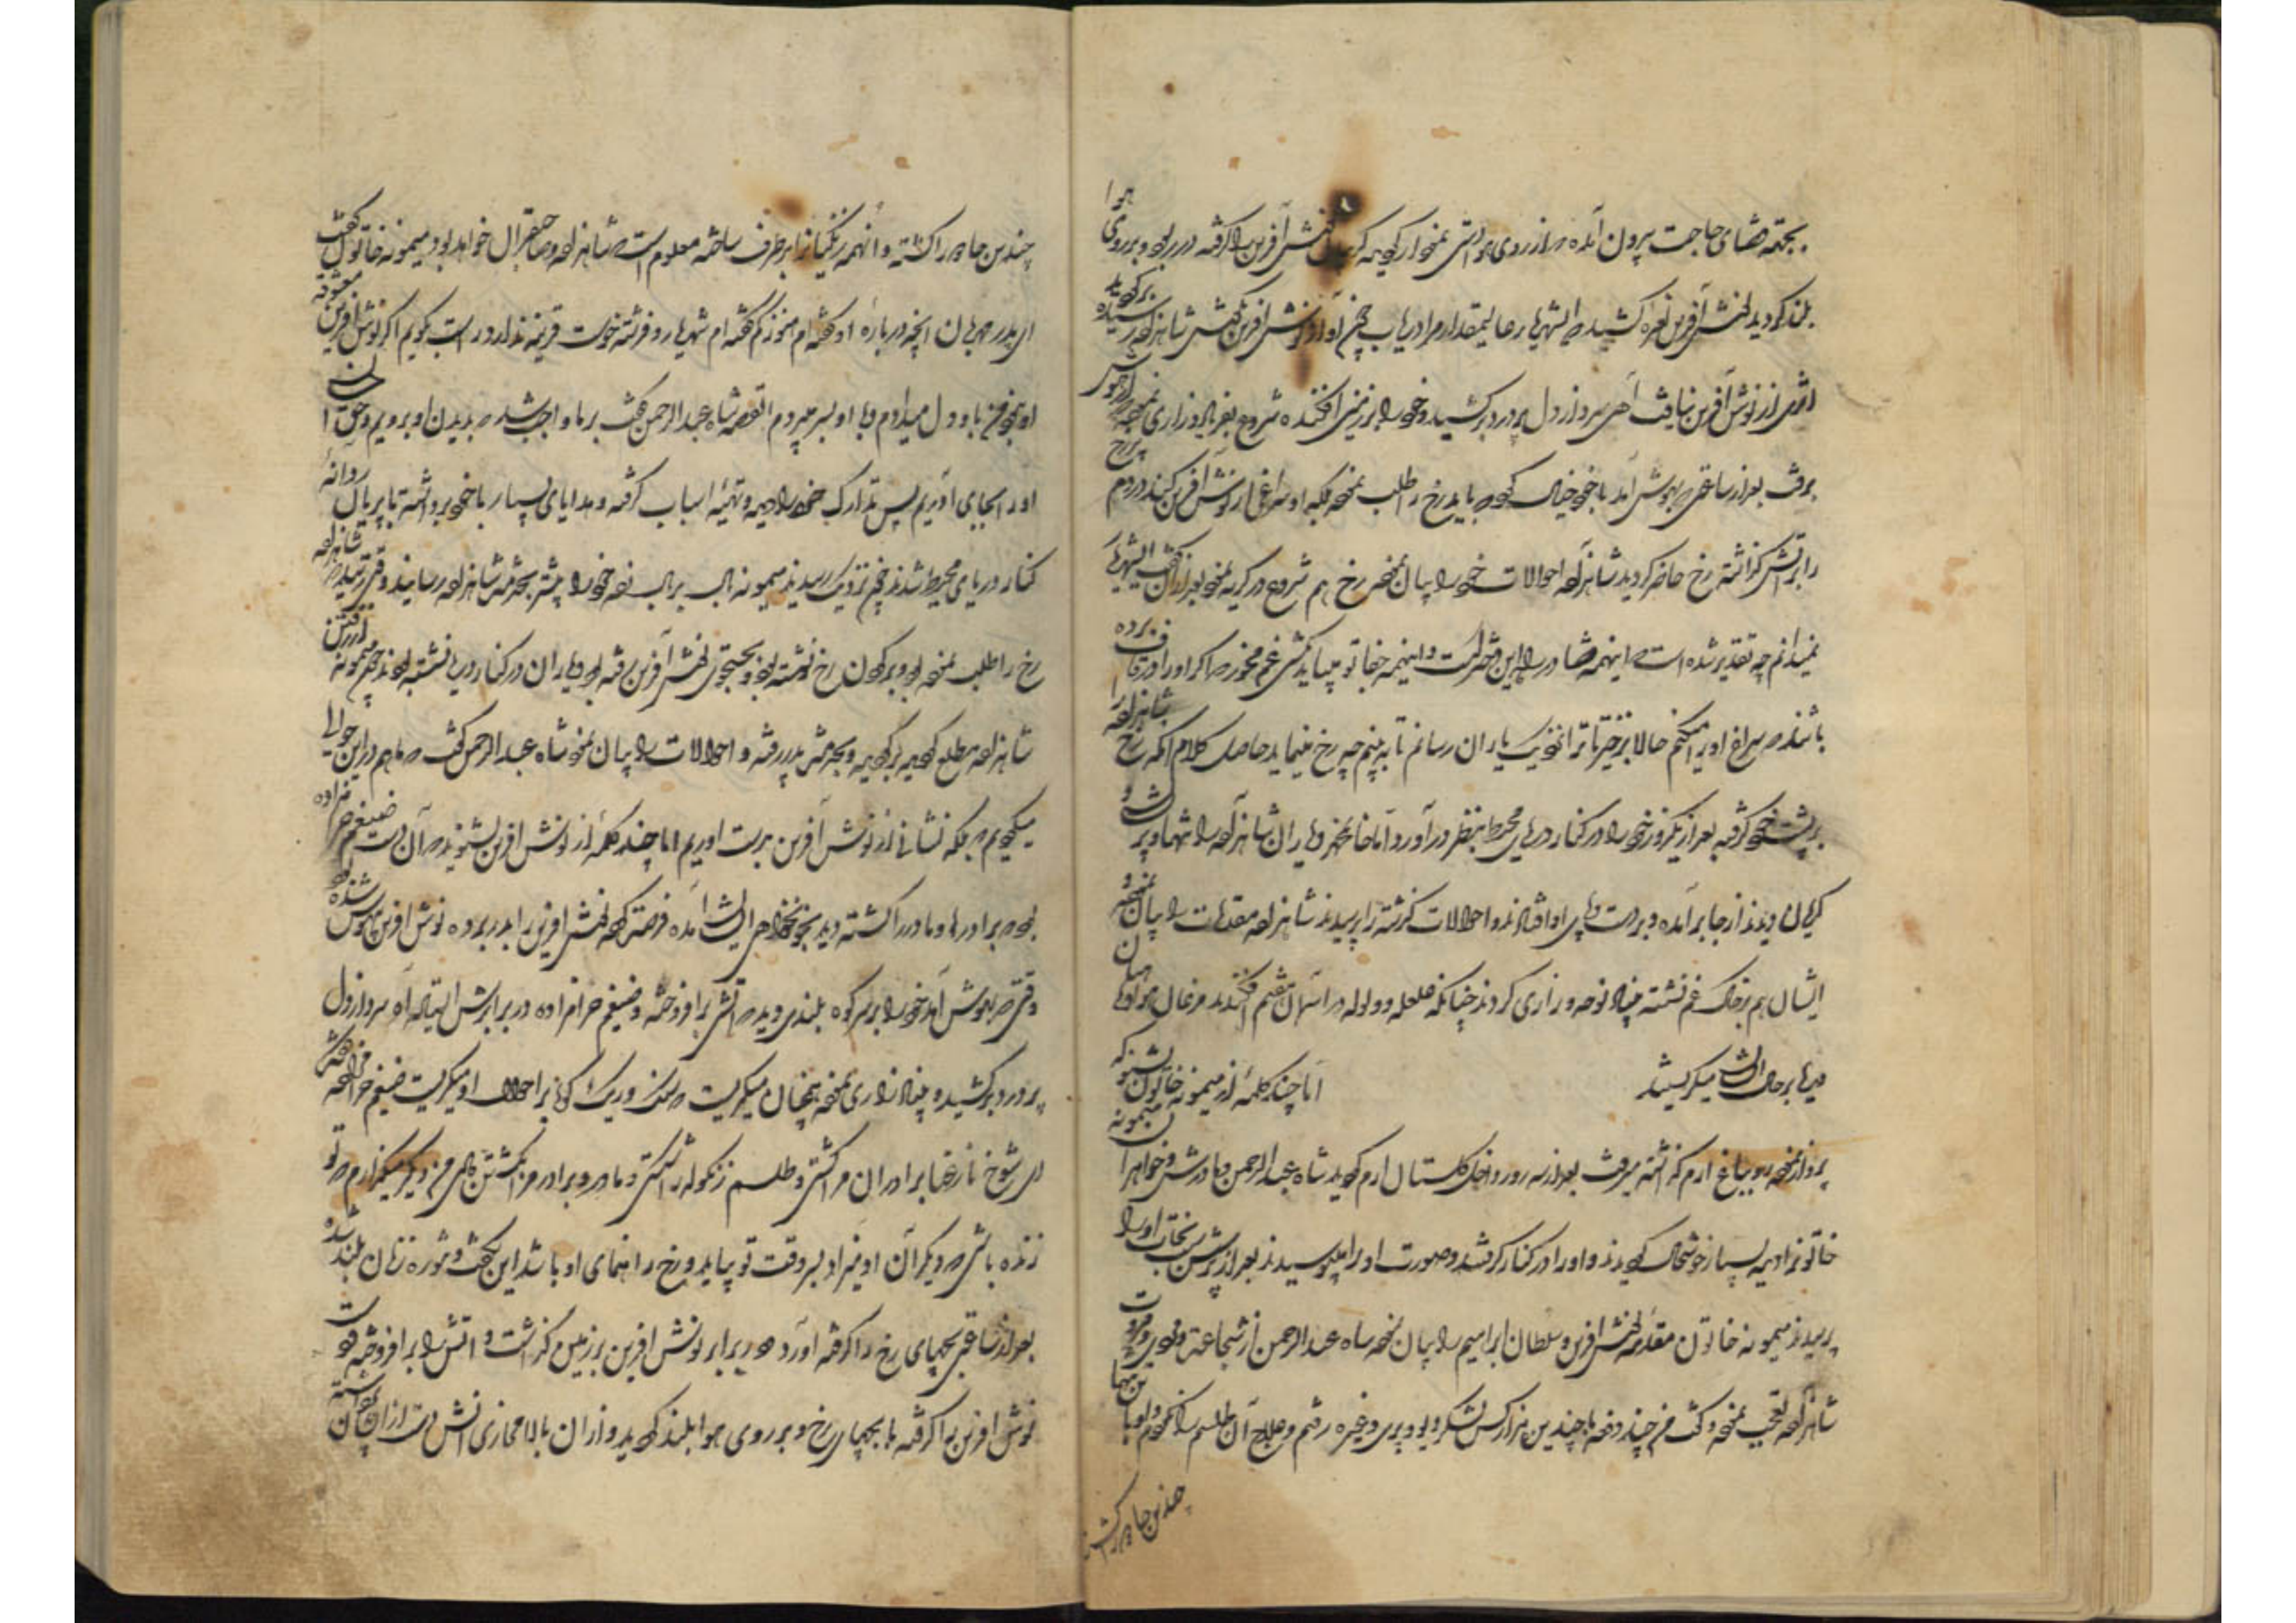 بجهة قضای حاجت بیرون آمده که از روی هوا دستی نمودار گردیده کمر نوش آفرین را گرفته در ربود و بر روی هوا
بلند گردید نوش آفرین نعره کشید که ای شهریار عالیمقدار مرا دریاب چون آواز نوش آفرین بگوش شاهزاده رسید
اثری از نوش آفرین نیافت آهی سرد از دل پر درد بر کشید و خود را بر زمین افکنده شروع بفریاد و زاری نموده از هوش
برفت بعد از ساعتی که بهوش آمد با خود خیال کرد که باید رخ را طلب نمود بلکه او سراغی از نوش آفرین کند در دم پر رخ
را بر آتش گذاشته رخ حاضر گردید شاهزاده احوالات خود را بیان نمود رخ هم شروع در گریه نمود بعد از آن گفت ای شهریار
نمیدانم چه تقدیر شده است که اینهمه قضا در راه این دختر است و اینهمه جفا تو میباید بکشی غم مخور که اگر او را در قاف برده
باشند که سراغ او پیدا میکنم حالا برخیز تا ترا نزدیک یاران رسانم تا به بینم چه رخ مینماید حاصل کلام آنکه رخ شاهزاده را
بر پشت خود گرفته بعد از یکروز خود را در کنار دریای محیط بنظر در آورد اما خانمحمد و یاران شاهزاده را تنها و پریشان و
گریان دیدند از جا برآمده و بر دست و پای او افتادند و احوالات گذشته را پرسیدند شاهزاده مقدمات را بیان نمود و
ایشان هم بر خاک غم نشسته چنان نوحه و زاری کردند چنانکه غلغله و ولوله در آسمان هفتم افکندند مرغان هوا و ماهیان
دریا بر حال ایشان میگریستند اما چند کلمه از میمونه خاتون بشنو که
پرواز نموده رو بباغ ارم گذاشته میرفت بعد از سه روز داخل گلستان ارم گردید شاه عبدالرحمن و مادرش و خواهران میمونه
خاتون را دیده بسیار خوشحال گردیدند و او را در کنار گرفتند و صورت او را بوسیدند بعد از پرسش سخنان او را
پرسیدند میمونه خاتون مقدمه نوش آفرین و سلطان ابراهیم را بیان نموده شاه عبدالرحمن از شجاعت و دلیری و مروت
شاهزاده تعجب نمود و گفت من چند دفعه با چندین هزار کس لشکر دیو و پری و غیره رفتم و علاج آن طلسم را نکردم و او با تن تنها
چندین جادو را کشت
چندین جادو را کشته و آنهمه زنگیان را بر طرف ساخته معلوم است که شاهزاده صاحبقران خواهد بود میمونه خاتون گفت
ای پدر مهربان آنچه درباره او گفته ام هنوز کم گفته ام شهریار و فرشته خوست قرینه ندارد راست گویم اگر نوش آفرین معشوقه
او نبود من با او دل میدادم و با او بسر میبردم القصه شاه عبدالرحمن گفت بر ما واجب شد که بدیدن او برویم و حق احسان
او را بجای آوریم پس تدارک خود را دیده و تهیه اسباب گرفته و هدایای بسیار با خود برداشته با پریان روانه
کنار دریای محیط شدند چون نزدیک رسیدند میمونه بال بر بال زده خود را پیشتر بخدمت شاهزاده رسانید وقتی رسید که شاهزاده
رخ را طلب نموده بود و بر گردن رخ نشسته بود و بجستجوی نوش آفرین رفته بود و یاران در کنار دریا نشسته بودند چون میمونه از رفتن
شاهزاده مطلع گردید برگردید و بخدمت پدر رفته و احوالات را بیان نمود شاه عبدالرحمن گفت که ما هم در این حوالی
میگردیم که بلکه نشانی از نوش آفرین بدست آوریم اما چند کلمه از نوش آفرین بشنوید که آن دست ضیغم حرامزاده
بود که برادرها و مادر را کشته دید بخونخواهی ایشان آمده فرصت کرده نوش آفرین را بدر برده نوش آفرین بیهوش شده بود
وقتی که بهوش آمد خود را بر سر کوه بلندی دید که آتش برافروخته و ضیغم حرامزاده در برابرش ایستاده آه سرد از دل
پر درد بر کشیده چنان زاری نمود چنان میگریست که سنگ و ریگ کوه بر احوال او میگریست ضیغم حرامزاده گفت
ای شوخ نازرعنا برادران مرا کشتی و طلسم زنکوله را شکستی و مادر و برادر مرا بکشتن دادی من دیگر میگذارم که تو
زنده باشی که دیگر آن آدمیزاد بسر وقت تو بیاید و رخ راهنمای او باشد این بگفت و تنوره زنان بلند شد
بعد از ساعتی بچهای رخ را گرفته آورد در برابر نوش آفرین بر زمین گذاشت و آتش را برافروخته دست
نوش آفرین را گرفته با بچهای رخ و بر روی هوا بلند گردید و از آن بالا محاذی آتش دست از آن